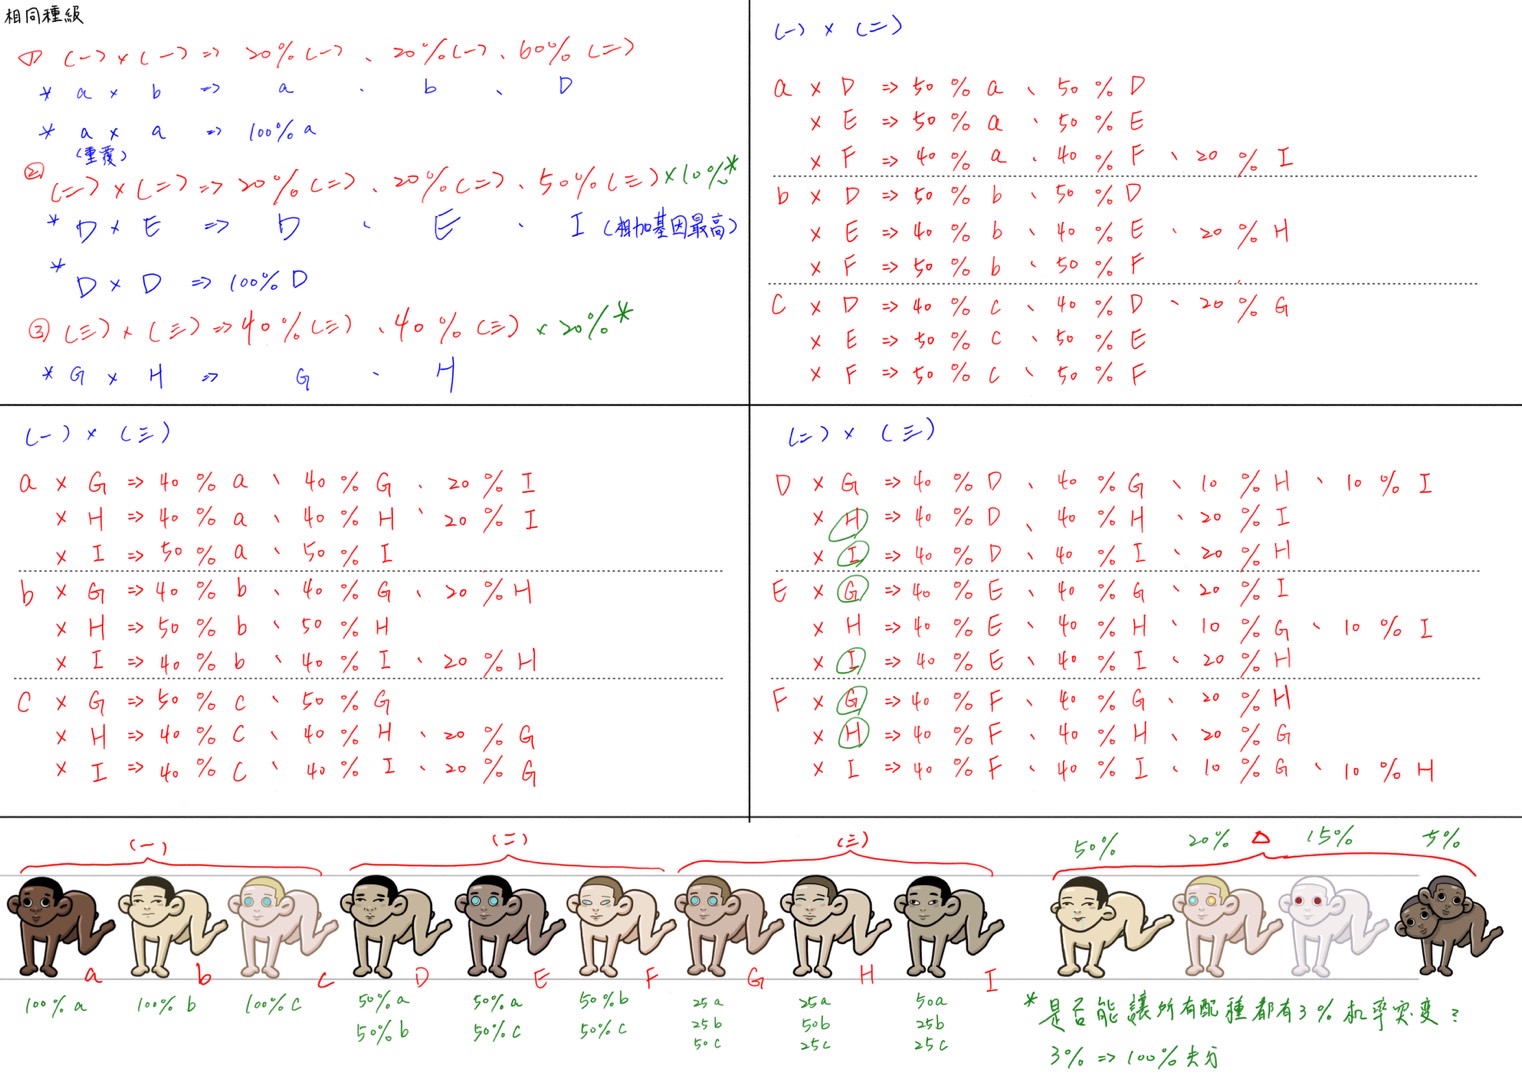 相同種級
① (一) × (一) => 20% (一) 、 20% (一) 、 60% (二)
* a × b => a 、 b 、 D
* a × a => 100% a
(重覆)
② (二) × (二) => 20% (二) 、 20% (二) 、 50% (三) ×10%*
* D × E => D 、 E 、 I (相加基因最高)
* D × D => 100% D
③ (三) × (三) => 40% (三) 、 40% (三) ×20%*
* G × H => G 、 H
(一) × (二)
a × D => 50 % a 、 50 % D
× E => 50 % a 、 50 % E
× F => 40 % a 、 40 % F 、 20 % I
b × D => 50 % b 、 50 % D
× E => 40 % b 、 40 % E 、 20 % H
× F => 50 % b 、 50 % F
C × D => 40 % c 、 40 % D 、 20 % G
× E => 50 % c 、 50 % E
× F => 50 % c 、 50 % F
(一) × (三)
a × G => 40 % a 、 40 % G 、 20 % I
× H => 40 % a 、 40 % H 、 20 % I
× I => 50 % a 、 50 % I
b × G => 40 % b 、 40 % G 、 20 % H
× H => 50 % b 、 50 % H
× I => 40 % b 、 40 % I 、 20 % H
C × G => 50 % c 、 50 % G
× H => 40 % C 、 40 % H 、 20 % G
× I => 40 % C 、 40 % I 、 20 % G
(二) × (三)
D × G => 40 % D 、 40 % G 、 10 % H 、 10 % I
× H => 40 % D 、 40 % H 、 20 % I
× I => 40 % D 、 40 % I 、 20 % H
E × G => 40 % E 、 40 % G 、 20 % I
× H => 40 % E 、 40 % H 、 10 % G 、 10 % I
× I => 40 % E 、 40 % I 、 20 % H
F × G => 40 % F 、 40 % G 、 20 % H
× H => 40 % F 、 40 % H 、 20 % G
× I => 40 % F 、 40 % I 、 10 % G 、 10 % H
(一) (二) (三) △
50% 20% 15% 5%
a b C D E F G H I
100% a 100% b 100% c 50% a 50% a 50% b 25a 25a 50a
50% b 50% c 50% c 25b 50b 25b
50c 25c 25c
* 是否能讓所有配種都有3%机率突变?
3% => 100%去分